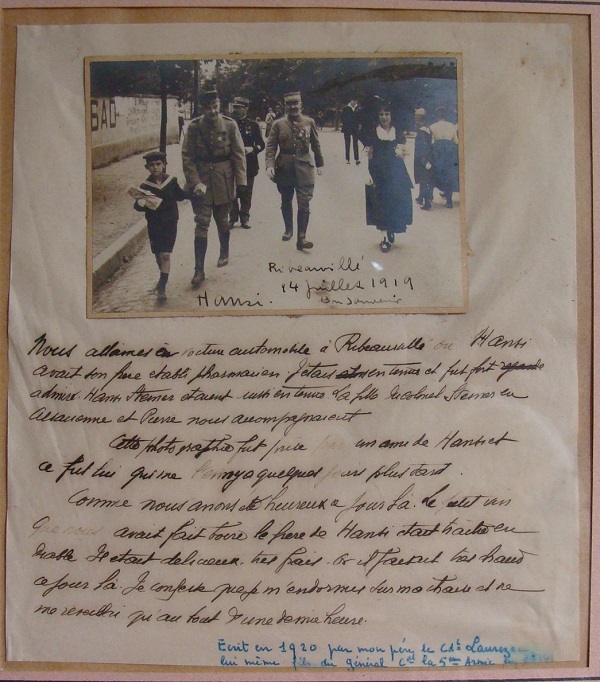 BAD
Ribeauvillé
14 juillet 1919
bon souvenir
Hansi.
Nous allames en voiture automobile à Ribeauvillé ou Hansi
avait son frere etabli pharmacien. J'etais en tenue et fut fort
admiré. Hansi Steiner etaient aussi en tenue la fille du colonel Steiner en
alsacienne et Pierre nous accompagnaient
Cette photographie fut prise par un ami de Hansi et
ce fut lui qui me l'envoya quelques jours plus tard.
Comme nous avons été heureux ce jour là. Le petit vin
que nous avait fait boire le frere de Hansi etait traitre en
diable Il etait delicieux, tres frais. Or il faisait tres chaud
ce jour là. Je confesse que je m'endormis sur ma chaise et ne
me reveillai qu'au bout d'une demie heure.
Ecrit en 1920 par mon père le Cdt
lui même fils du général Ct la 5eme Armée en